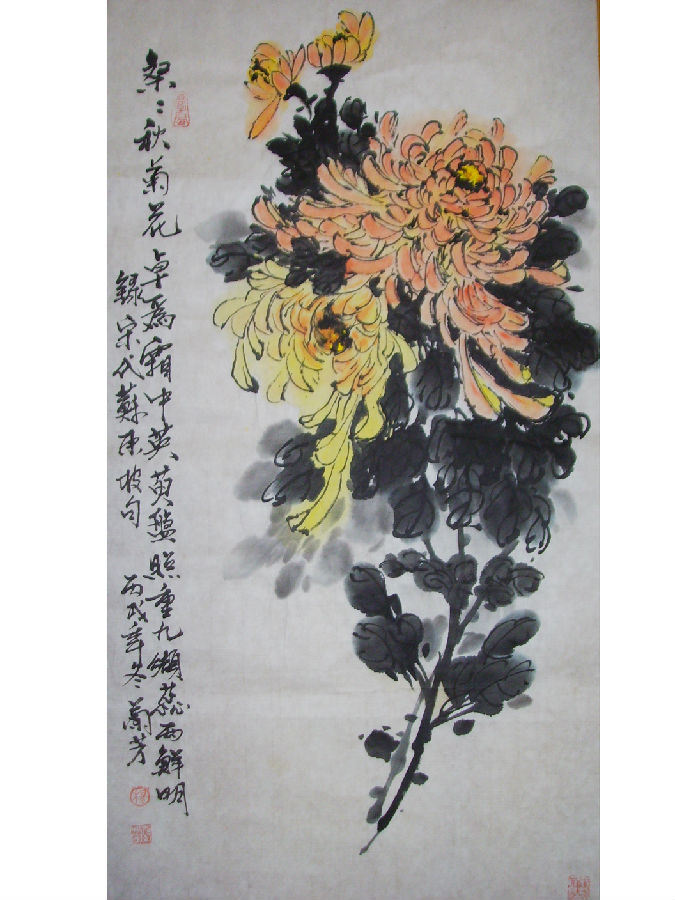 粲〻秋菊花卓爲霜中英萸盤照重九纈蕊两鮮明
録宋代蘇東坡句
丙戌年冬蘭芳